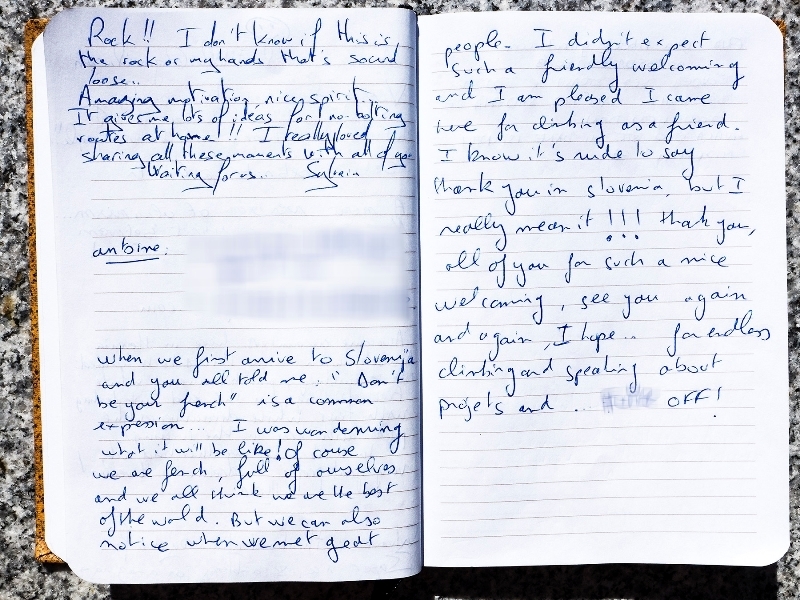 Rock!! I don't know if this is
the rock or my hands that's sound
loose..
Amazing motivation, nice spirit
It gives me lots of ideas for no-bolting
routes at home!!! I really loved
sharing all these moments with all of you
Waiting for us... Sylvain
antoine:
when we first arrive to Slovenija
and you all told me: " Don't
be your french" is a common
expression... I was wandenning
what it will be like! Of couse
we are fench, full of ourselves
and we all think we are the best
of the wold. But we can also
notice when we met geat
people. I didn't expect
such a friendly welcoming
and I am pleased I came
here for climbing as a friend.
I know it's rude to say
thank you in slovenia, but I
really mean it !!! thak you,
all of you for such a nice
welcoming, see you again
and again, I hope... for endless
climbing and speaking about
projets and ... OFF!